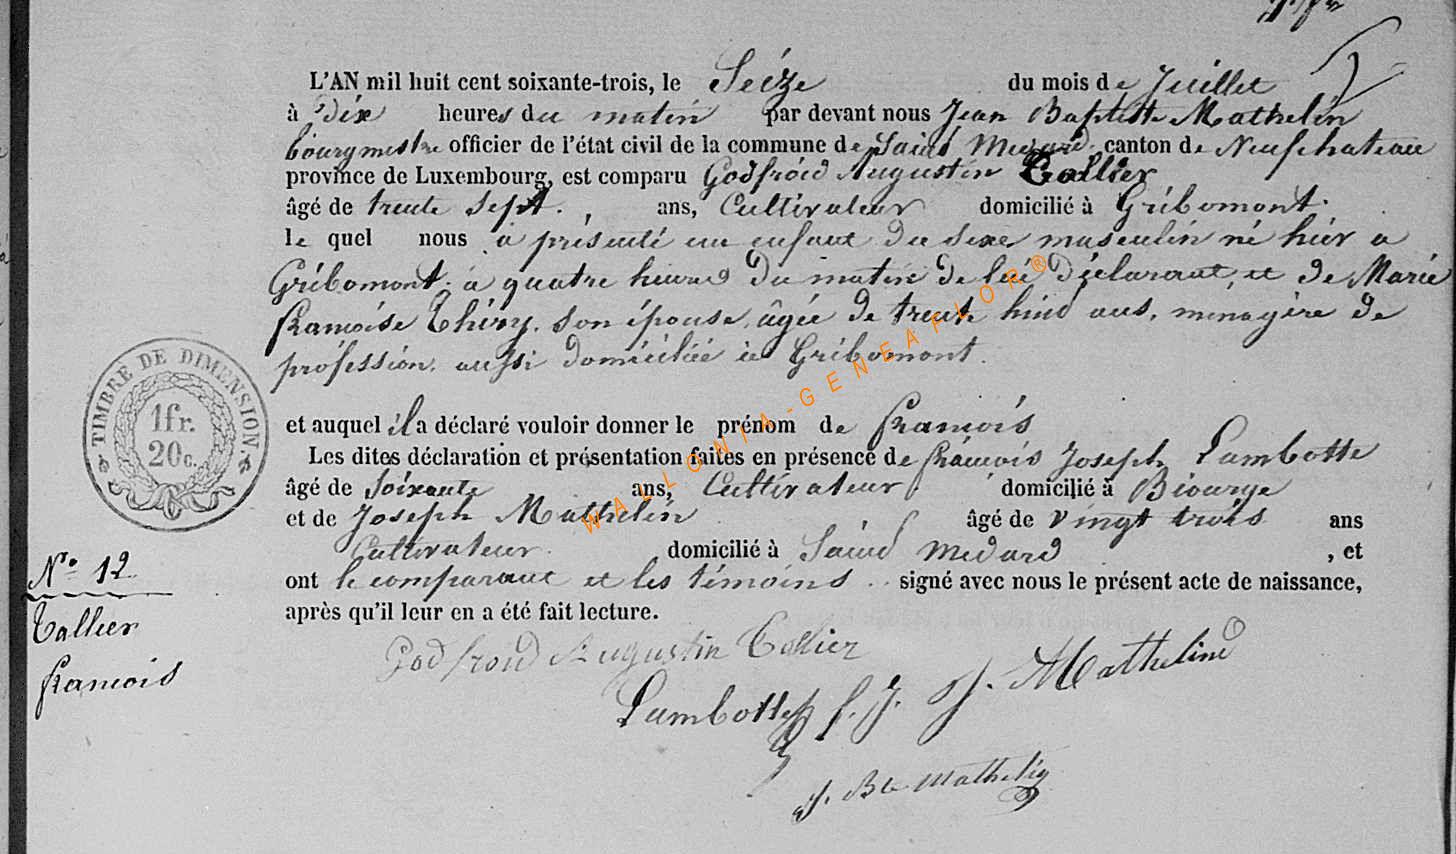 L'AN mil huit cent soixante-trois, le Seize du mois de Juillet
à dix heures du matin par devant nous Jean Baptiste Mathelin
bourgmestre officier de l'état civil de la commune de Saint Medard canton de Neufchateau
province de Luxembourg, est comparu Godfroid Augustin Tallier
âgé de trente sept. , ans, Cultivateur domicilié à Gribomont.
le quel nous a présenté un enfant du sexe masculin né hier a
Gribomont. à quatre heures du matin de lui déclarant, et de Marie
francoise Thiry. son épouse, âgée de trente huit ans, ménagère de
proféssion, aussi domiciliée à Gribomont.
et auquel il a déclaré vouloir donner le prénom de francois
Les dites déclaration et présentation faites en présence de francois Joseph Lambotte
âgé de Soixante ans, Cultivateur domicilié à Biourge
et de Joseph Mathelin âgé de vingt trois ans
Cultivateur. domicilié à Saint Medard , et
ont le comparant et les témoins signé avec nous le présent acte de naissance,
après qu'il leur en a été fait lecture.
Godfroid Augustin Tallier
Lambotte f. J. J. Mathelin
J. Bte Mathelin
TIMBRE DE DIMENSION
1fr.
20c.
No 12
Tallier
francois
WALLONIA-GENEAFLOR®